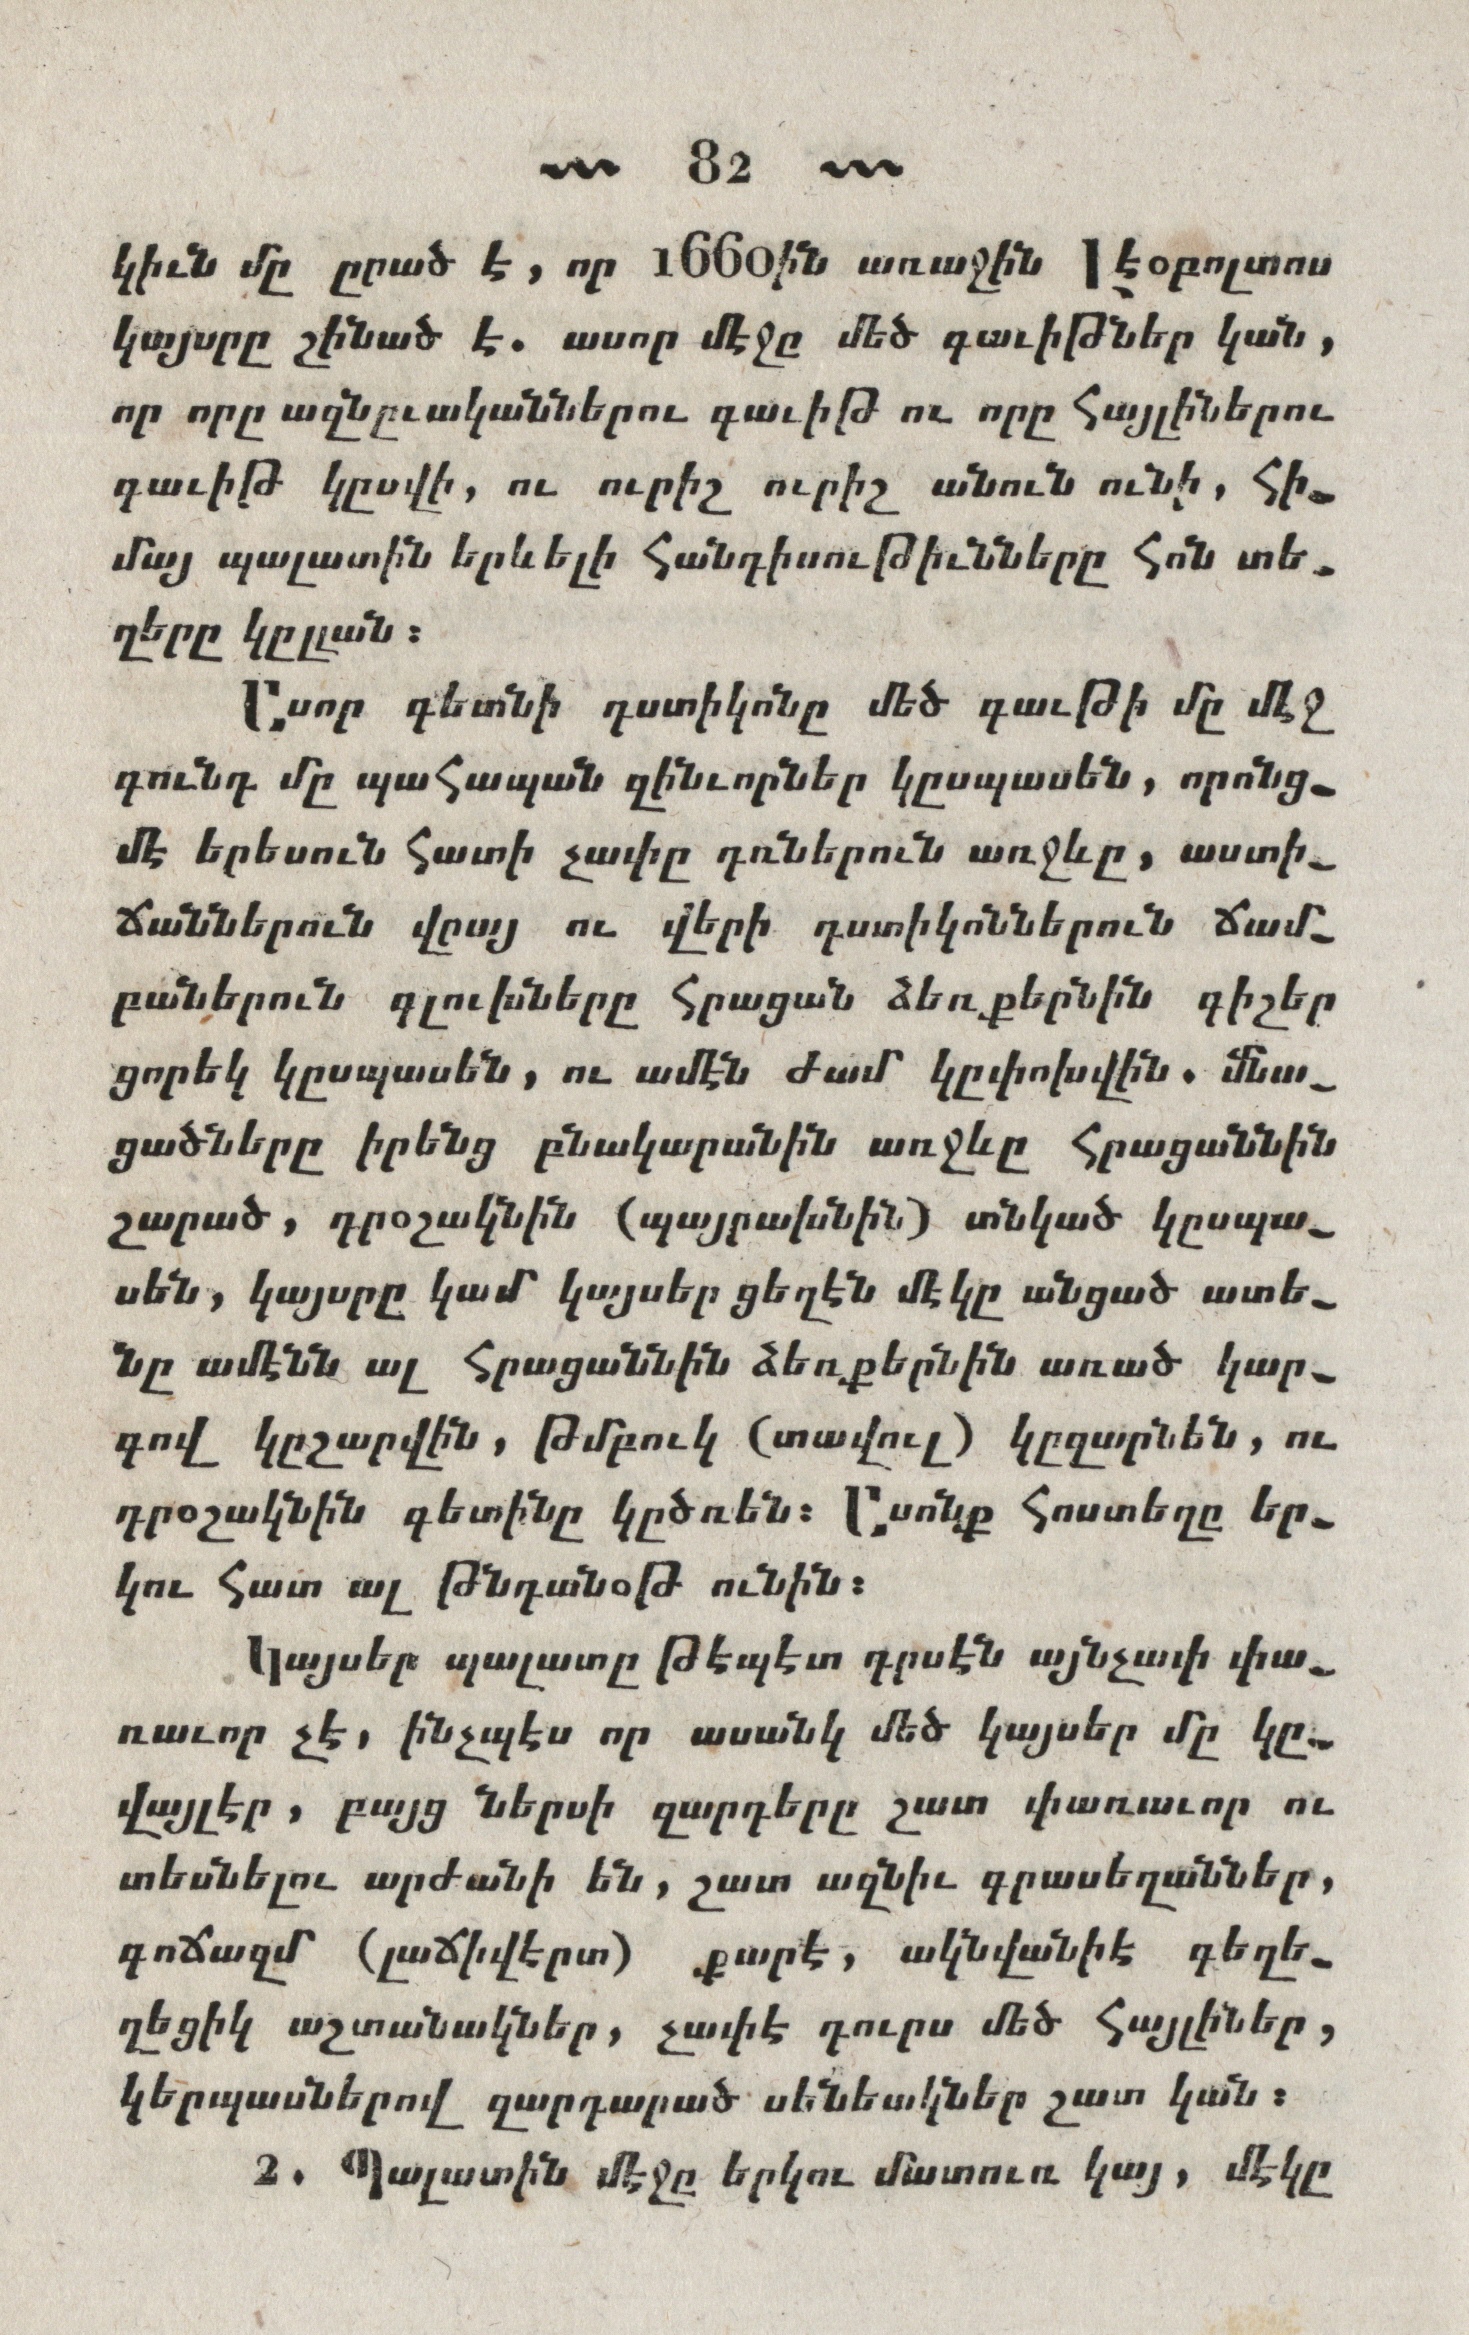 82
կիւն մը ըրած է, որ 1660ին առաջին Լէօբոլտոս
կայսրը շինած է. ասոր մէջը մեծ գաւիթներ կան,
որ որը ազնըւականներու գաւիթ ու որը հայլիներու
գաւիթ կըսվի, ու ուրիշ ուրիշ անուն ունի, հի-
մայ պալատին երևելի հանդիսութիւնները հոն տե-
ղերը կըլլան։
Ասոր գետնի դստիկոնը մեծ գաւթի մը մէջ
գունդ մը պահապան զինւորներ կըսպասեն, որոնց-
մէ երեսուն հատի չափը դռներուն առջևը, աստի-
ճաններուն վըայ ու վերի դստիկոններուն ճամ-
բաներուն գլուխները հրացան ձեռքերնին գիշեր
ցորեկ կըսպասեն, ու ամէն ժամ կըփոխվին. մնա-
ցածները իրենց բնակարանին առջևը հրացաննին
շարած, դրօշակնին (պայրախնին) տնկած կըսպա-
սեն, կայսրը կամ կայսեր ցեղէն մէկը անցած ատե-
նը ամէնն ալ հրացաննին ձեռքերնին առած կար-
գով կըշարվին, թմբուկ (տավուլ) կըզարնեն, ու
դրօշակնին գետինը կըծռեն։ Ասոնք հոստեղը եր-
կու հատ ալ թնդանօթ ունին։
Կայսեր պալատը թէպէտ դրսէն այնչափ փա-
ռաւոր չէ, ինչպէս որ ասանկ մեծ կայսեր մը կը-
վայլէր, բայց ներսի զարդերը շատ փառաւոր ու
տեսնելու արժանի են, շատ ազնիւ գրասեղաններ,
գոճազմ (լաճխվէրտ) քարէ, ակնվանիէ գեղե-
ղեցիկ աշտանակներ, չափէ դուրս մեծ հայլիներ,
կերպասներով զարդարած սենեակներ շատ կան։
2. Պալատին մէջը երկու մատուռ կայ, մէկը